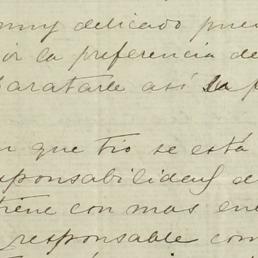 muy delicado pue
or la preferencia de
baratarle así la p
n que tio se está
sponsabilidad d
tiene con mas en
responsable com